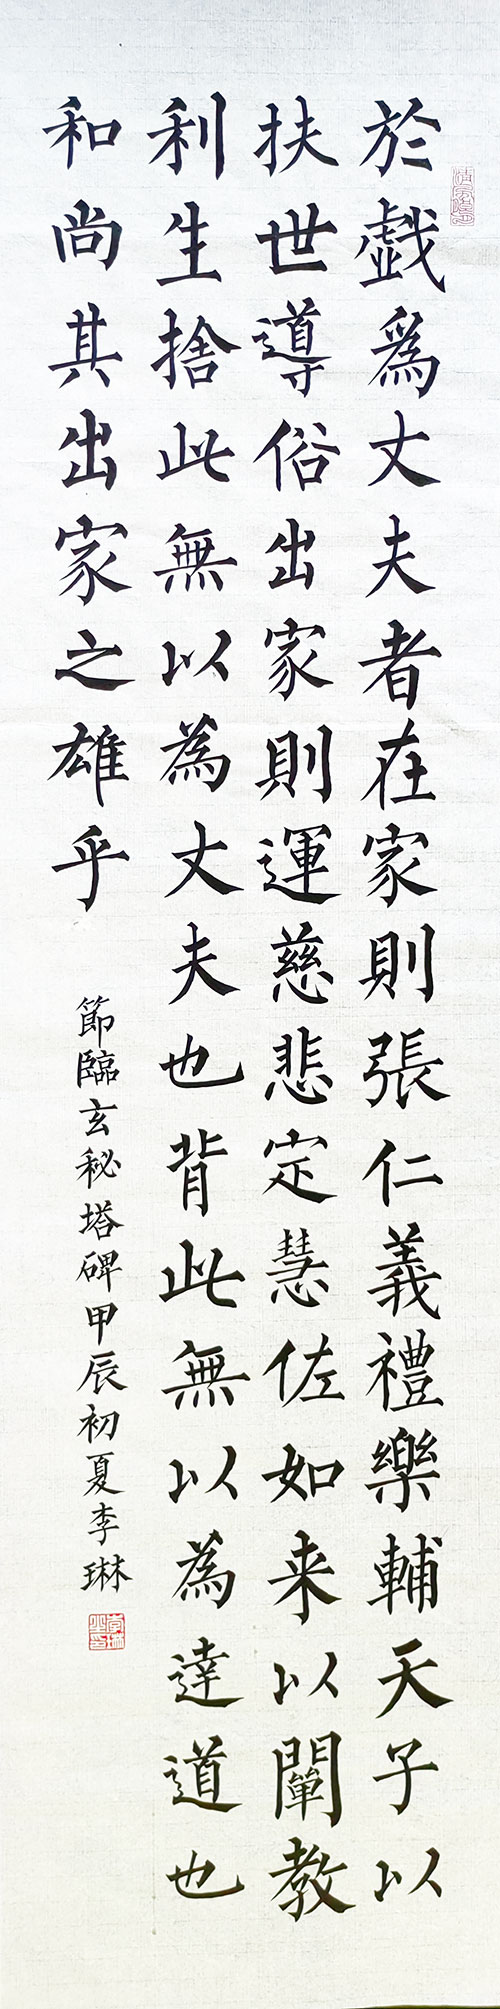 於戲爲丈夫者在家則張仁義禮樂輔天子以
扶世導俗出家則運慈悲定慧佐如来以闡教
利生捨此無以為丈夫也背此無以為達道也
和尚其出家之雄乎
節臨玄秘塔碑甲辰初夏李琳